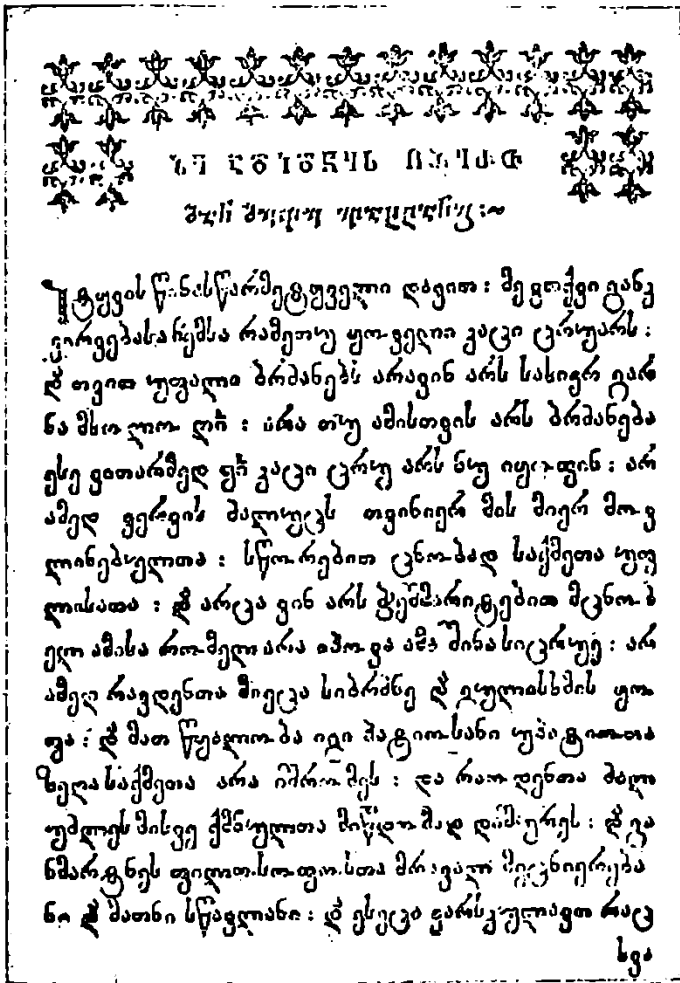 იტყჳის წინასწარმეტყუველი დავით : მე ვთქვი განკ
ვირვებასა ჩემსა რამეთუ ყოველი კაცი ცრუარს :
დ~ა თვით უფალი ბრძანებს არავინ არს სახიერ გარ
ნა მხოლო ღ~ნ : არა თუ ამისთვის არს ბრძანება
ესე ვითარმედ ყ~ნ კაცი ცრუ არს ნუ იყოფინ : არ
ამედ ვერვის ძალუცს თვინიერ მის მიერ მოვ
ლინებულთა : სწორებით ცნობად საქმეთა უფ
ლისათა : დ~ა არცა ვინ არს ჭეშმარიტებით მცნობ
ელ ამისა რომელ არა იპოვა შინა სიცრუვე : არ
ამედ რავდენთა მიეცა სიბრძნე დ~ა გულისხმის ყო
ფა : დ~ა მათ წყალობა იგი პატიოსანი
ზედა საქმეთა არა იშრომეს : და რაოდენთა ძალ
უძლეს მისვე ქმნულთა დაშურეს : დ~ა გა
ნმარტნეს ფილოსოფოსთა მრავალი მეცნიერება
ნი დ~ა მათნი სწავლანი : დ~ა ესეცა ვარსკულავთ რაც
სვა